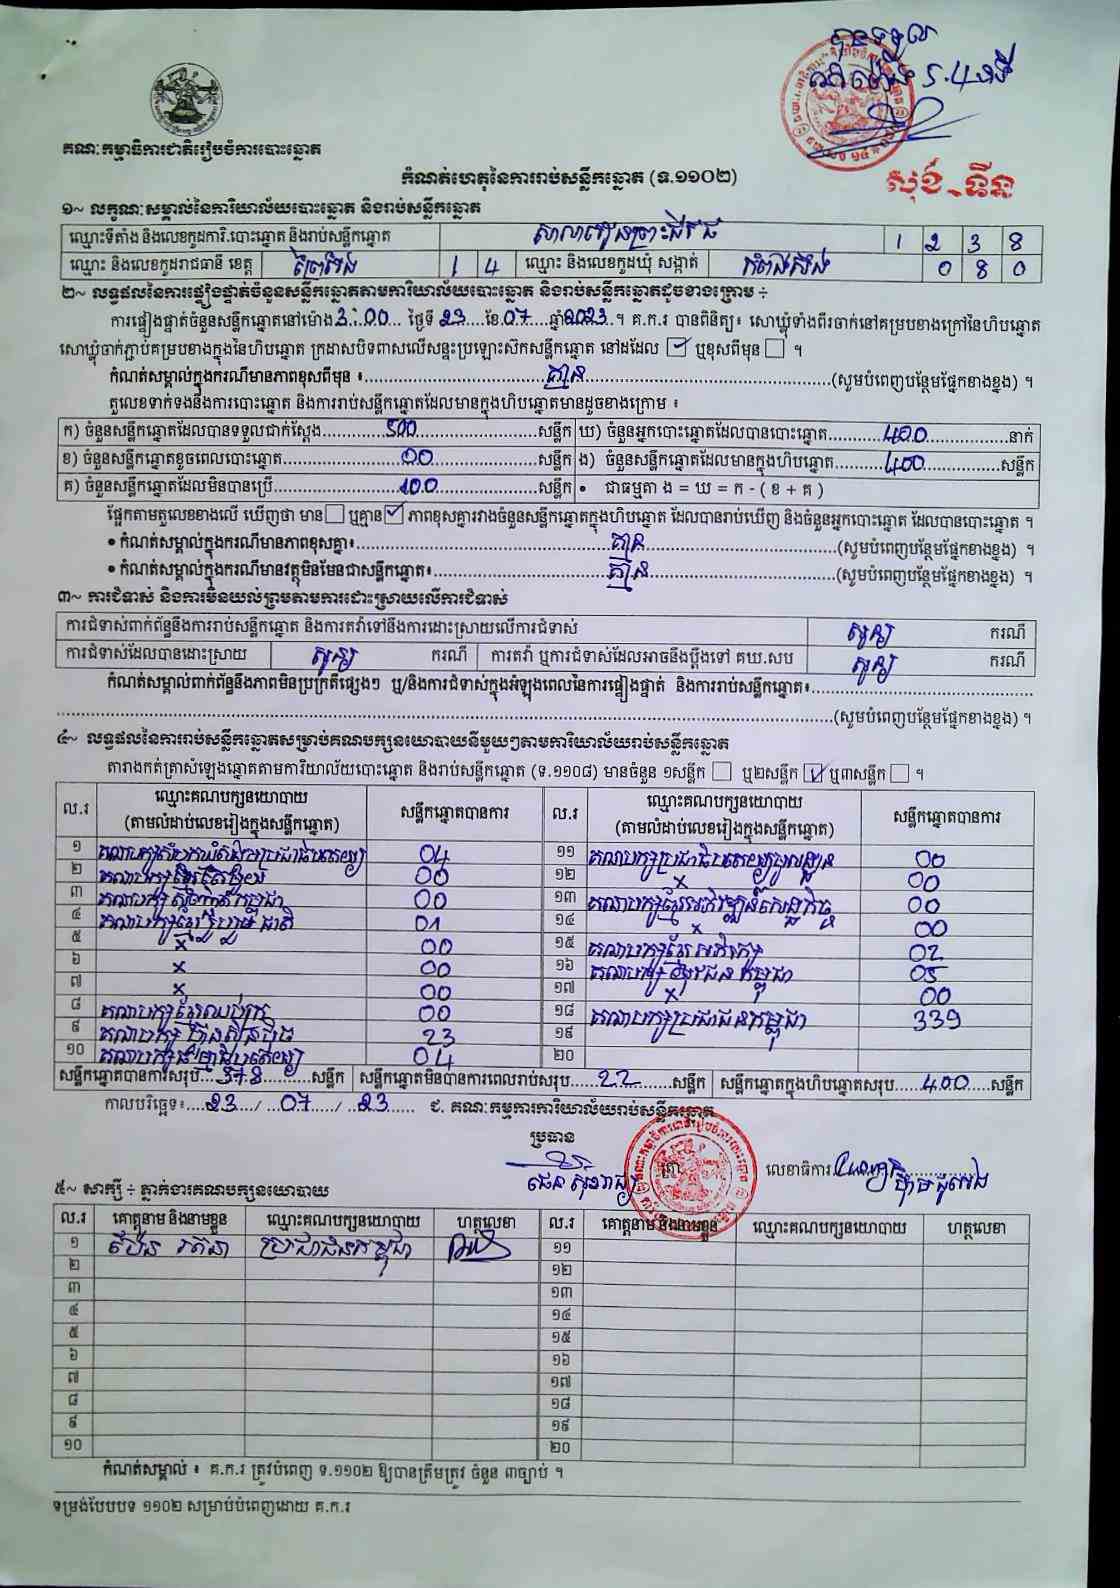 គណៈកម្មាធិការជាតិរៀបចំការបោះឆ្នោត
កំណត់ហេតុនៃការរាប់សន្លឹកឆ្នោត (ទ.១១០២)
សុខ ទីន
១~ លក្ខណៈសម្គាល់នៃការិយាល័យបោះឆ្នោត និងរាប់សន្លឹកឆ្នោត
ឈ្មោះទីតាំង និងលេខកូដការិ.បោះឆ្នោត និងរាប់សន្លឹកឆ្នោត 1 2 3 8
ឈ្មោះ និងលេខកូដរាជធានី ខេត្ត ព្រៃវែង 1 4 ឈ្មោះ និងលេខកូដឃុំ សង្កាត់ 0 8 0
២~ លទ្ធផលនៃការផ្ទៀងផ្ទាត់ចំនួនសន្លឹកឆ្នោតតាមការិយាល័យបោះឆ្នោត និងរាប់សន្លឹកឆ្នោតដូចខាងក្រោម ÷
ការផ្ទៀងផ្ទាត់ចំនួនសន្លឹកឆ្នោតនៅម៉ោង 3:00 ថ្ងៃទី 23 ខែ 07 ឆ្នាំ 2023 ។ គ.ក.រ បានពិនិត្យ៖ សោឃ្លុំទាំងពីរចាក់នៅគម្របខាងក្រៅនៃហិបឆ្នោត
សោឃ្លុំចាក់ភ្ជាប់គម្របខាងក្នុងនៃហិបឆ្នោត ក្រដាសបិទពាសលើសន្ទះប្រឡោះស៊កសន្លឹកឆ្នោត នៅដដែល ☑ ឬខុសពីមុន ☐ ។
កំណត់សម្គាល់ក្នុងករណីមានភាពខុសពីមុន ៖ គ្មាន (សូមបំពេញបន្ថែមផ្នែកខាងខ្នង) ។
តួលេខទាក់ទងនឹងការបោះឆ្នោត និងការរាប់សន្លឹកឆ្នោតដែលមានក្នុងហិបឆ្នោតមានដូចខាងក្រោម ៖
ក) ចំនួនសន្លឹកឆ្នោតដែលបានទទួលជាក់ស្តែង 500 សន្លឹក ឃ) ចំនួនអ្នកបោះឆ្នោតដែលបានបោះឆ្នោត 400 នាក់
ខ) ចំនួនសន្លឹកឆ្នោតខូចពេលបោះឆ្នោត 00 សន្លឹក ង) ចំនួនសន្លឹកឆ្នោតដែលមានក្នុងហិបឆ្នោត 400 សន្លឹក
គ) ចំនួនសន្លឹកឆ្នោតដែលមិនបានប្រើ 100 សន្លឹក • ជាធម្មតា ង = ឃ = ក - ( ខ + គ )
ផ្អែកតាមតួលេខខាងលើ ឃើញថា មាន ☐ ឬគ្មាន ☑ ភាពខុសគ្នារវាងចំនួនសន្លឹកឆ្នោតក្នុងហិបឆ្នោត ដែលបានរាប់ឃើញ និងចំនួនអ្នកបោះឆ្នោត ដែលបានបោះឆ្នោត ។
• កំណត់សម្គាល់ក្នុងករណីមានភាពខុសគ្នា៖ គ្មាន (សូមបំពេញបន្ថែមផ្នែកខាងខ្នង) ។
• កំណត់សម្គាល់ក្នុងករណីមានវត្ថុមិនមែនជាសន្លឹកឆ្នោត៖ គ្មាន (សូមបំពេញបន្ថែមផ្នែកខាងខ្នង) ។
៣~ ការជំទាស់ និងការមិនយល់ព្រមតាមការដោះស្រាយលើការជំទាស់
ការជំទាស់ពាក់ព័ន្ធនឹងការរាប់សន្លឹកឆ្នោត និងការតវ៉ាទៅនឹងការដោះស្រាយលើការជំទាស់ សូន្យ ករណី
ការជំទាស់ដែលបានដោះស្រាយ សូន្យ ករណី ការតវ៉ា ឬការជំទាស់ដែលអាចនឹងប្តឹងទៅ គឃ.សប សូន្យ ករណី
កំណត់សម្គាល់ពាក់ព័ន្ធនឹងភាពមិនប្រក្រតីផ្សេងៗ ឬ/និងការជំទាស់ក្នុងអំឡុងពេលនៃការផ្ទៀងផ្ទាត់ និងការរាប់សន្លឹកឆ្នោត៖
(សូមបំពេញបន្ថែមផ្នែកខាងខ្នង) ។
៤~ លទ្ធផលនៃការរាប់សន្លឹកឆ្នោតសម្រាប់គណបក្សនយោបាយនីមួយៗតាមការិយាល័យរាប់សន្លឹកឆ្នោត
តារាងកត់ត្រាសំឡេងឆ្នោតតាមការិយាល័យបោះឆ្នោត និងរាប់សន្លឹកឆ្នោត (ទ.១១០៨) មានចំនួន ១សន្លឹក ☐ ឬ២សន្លឹក ☑ ឬ៣សន្លឹក ☐ ។
ល.រ ឈ្មោះគណបក្សនយោបាយ (តាមលំដាប់លេខរៀងក្នុងសន្លឹកឆ្នោត) សន្លឹកឆ្នោតបានការ ល.រ ឈ្មោះគណបក្សនយោបាយ (តាមលំដាប់លេខរៀងក្នុងសន្លឹកឆ្នោត) សន្លឹកឆ្នោតបានការ
១ 04 ១១ គណបក្សប្រជាធិបតេយ្យមូលដ្ឋាន 00
២ 00 ១២ x 00
៣ 00 ១៣ គណបក្សខ្មែរអភិវឌ្ឍន៍សេដ្ឋកិច្ច 00
៤ គណបក្សខ្មែររួបរួមជាតិ 01 ១៤ x 00
៥ x 00 ១៥ គណបក្សខ្មែរអភិរក្ស 02
៦ x 00 ១៦ គណបក្សយុវជនកម្ពុជា 05
៧ x 00 ១៧ x 00
៨ គណបក្សខ្មែរឈប់ក្រ 00 ១៨ គណបក្សប្រជាជនកម្ពុជា 339
៩ គណបក្សហ៊្វុនស៊ិនប៉ិច 23 ១៩
១០ គណបក្សធម្មាធិបតេយ្យ 04 ២០
សន្លឹកឆ្នោតបានការសរុប 378 សន្លឹក សន្លឹកឆ្នោតមិនបានការពេលរាប់សរុប 22 សន្លឹក សន្លឹកឆ្នោតក្នុងហិបឆ្នោតសរុប 400 សន្លឹក
កាលបរិច្ឆេទ៖ 23 / 07 / 23 ជ. គណៈកម្មការការិយាល័យរាប់សន្លឹកឆ្នោត
ប្រធាន
លេខាធិការ
៥~ សាក្សី ÷ ភ្នាក់ងារគណបក្សនយោបាយ
ល.រ គោត្តនាម និងនាមខ្លួន ឈ្មោះគណបក្សនយោបាយ ហត្ថលេខា ល.រ គោត្តនាម និងនាមខ្លួន ឈ្មោះគណបក្សនយោបាយ ហត្ថលេខា
១ ប៉ែន រតនា ប្រជាជនកម្ពុជា ១១
២ ១២
៣ ១៣
៤ ១៤
៥ ១៥
៦ ១៦
៧ ១៧
៨ ១៨
៩ ១៩
១០ ២០
កំណត់សម្គាល់ ៖ គ.ក.រ ត្រូវបំពេញ ទ.១១០២ ឱ្យបានត្រឹមត្រូវ ចំនួន ៣ច្បាប់ ។
ទម្រង់បែបបទ ១១០២ សម្រាប់បំពេញដោយ គ.ក.រ